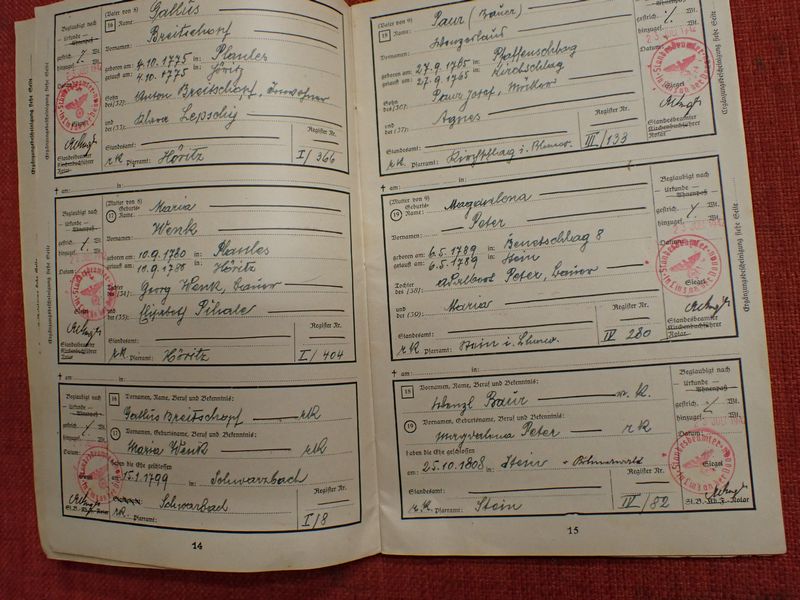 (Vater von 8)
16 Name: Gallus
Breitschopf
Vornamen:
geboren am: 4.10.1775 in: Planles
getauft am: 4.10.1775 in: Höritz
Sohn des (32): Anton Breitschopf, Inwohner
und der (33): Klara Lepschy
Standesamt: Register Nr.
rk Pfarramt: Höritz I/366
Beglaubigt nach
Urkunde —
Ahnenpaß
gestrich.
hinzugef. Wt.
Datum:
Siegel
Standesbeamter
Kirchenbuchführer
Notar
Ergänzungsbescheinigung siehe Seite
† am: in:
(Mutter von 8)
17 Geburts-Name: Maria
Wenk
Vornamen:
geboren am: 10.9.1780 in: Planles
getauft am: 10.9.1780 in: Höritz
Tochter des (34): Georg Wenk, Bauer
und der (35): Elisabeth
Standesamt: Register Nr.
rk. Pfarramt: Höritz I/404
† am: in:
16 Vornamen, Name, Beruf und Bekenntnis:
Gallus Breitschopf rk
17 Vornamen, Geburtsname, Beruf und Bekenntnis:
Maria Wenk rk
haben die Ehe geschlossen
am: 15.1.1799 in: Schwarzbach
Register Nr.
rk. Pfarramt: Schwarzbach I/8
14
(Vater von 9)
18 Name: Paur (Bauer)
Vornamen: Wenzeslaus
geboren am: 27.9.1765 in: Pfaffenschlag
getauft am: 27.9.1765 in: Kirchschlag
Sohn des (36): Paur Josef,
und der (37): Agnes
Standesamt: Register Nr.
rk. Pfarramt: Kirchschlag i. Böhmerw. III/133
† am: in:
(Mutter von 9)
19 Geburts-Name: Magdalena
Peter
Vornamen:
geboren am: 6.5.1789 in: Benetschlag 8
getauft am: 6.5.1789 in: Stein
Tochter des (38): Peter, Bauer
und der (39): Maria
Standesamt: Register Nr.
rk. Pfarramt: Stein i. Böhmerw. IV 280
† am: in:
18 Vornamen, Name, Beruf und Bekenntnis:
Wenzl Baur r. k.
19 Vornamen, Geburtsname, Beruf und Bekenntnis:
Magdalena Peter rk
haben die Ehe geschlossen
am: 25.10.1808 in: Stein Böhmerwald
Standesamt: Register Nr.
r.k. Pfarramt: Stein IV/82
Beglaubigt nach
Urkunde —
Ahnenpaß
gestrich. Wt.
hinzugef.
Datum:
Siegel
St.B. Kb.F. Notar
15